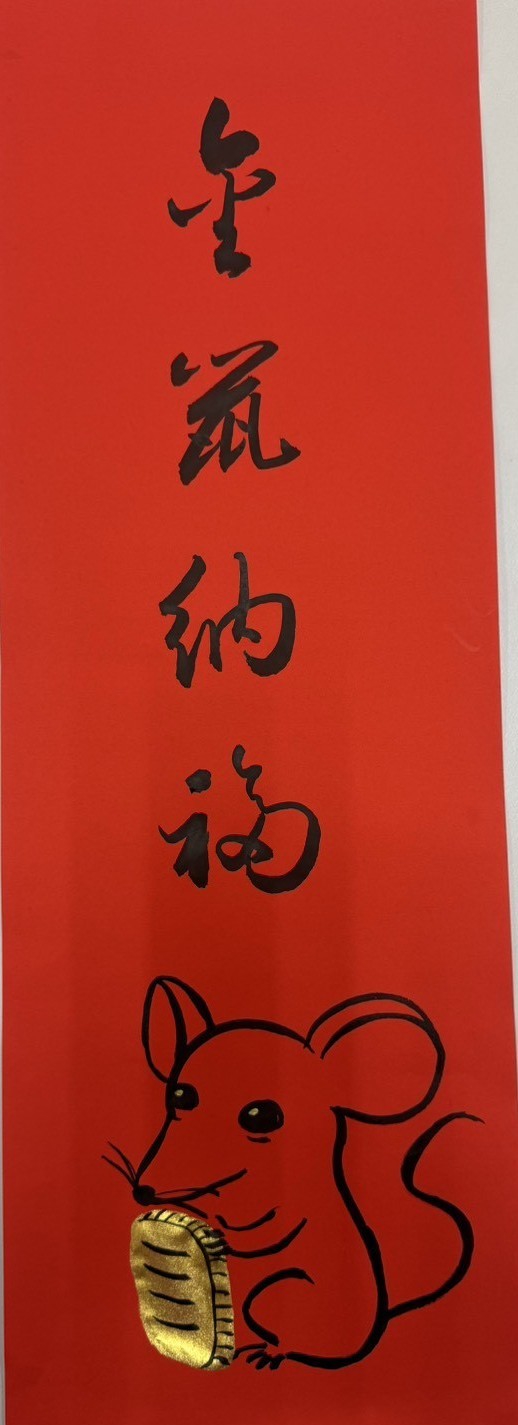 金鼠纳福